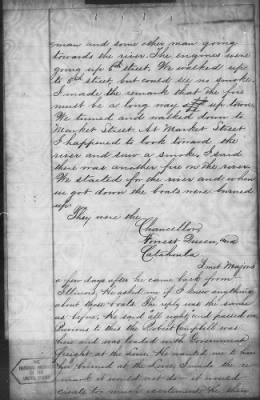 man and some other man going
towards the river. The engines were
going up 6th street. We walked up
to 5th street, but could see no smoke
I made the remark that the fire
must be a long way up town.
We turned and walked down to
Market Street. At Market Street
I happened to look toward the
river and saw a smoke, I said
there was another fire on the river.
We started for the river and when
we got down the boats were burned
up.
They were the
Chancellor
Forest Queen, and
Catahoula
I met Majors
a few days after he came back from
Illinois. He asked me if I knew anything
about those boats. The reply was the same
as before. He said all right and passed on
Previous to this the Robert Campbell was
here and was loaded with Government
freight at the Levee. He wanted me to
her burned at the Levee, I made the re-
mark it would not do it would
create too much excitement
THE
NATIONAL ARCHIVES
OF THE
UNITED STATES